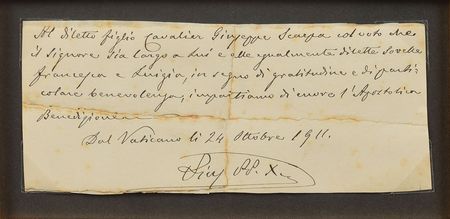 Al diletto figlio Cavalier Giuseppe Scarpa col voto che
il Signore sia largo a Lui e alle egualmente dilette Sorelle
Francesca e Luigia, in segno di gratitudine e di parti-
colare benevolenza, impartiamo di cuore l'Apostolica
Benedizione.
Dal Vaticano li 24 Ottobre 1911.
Pius PP. X